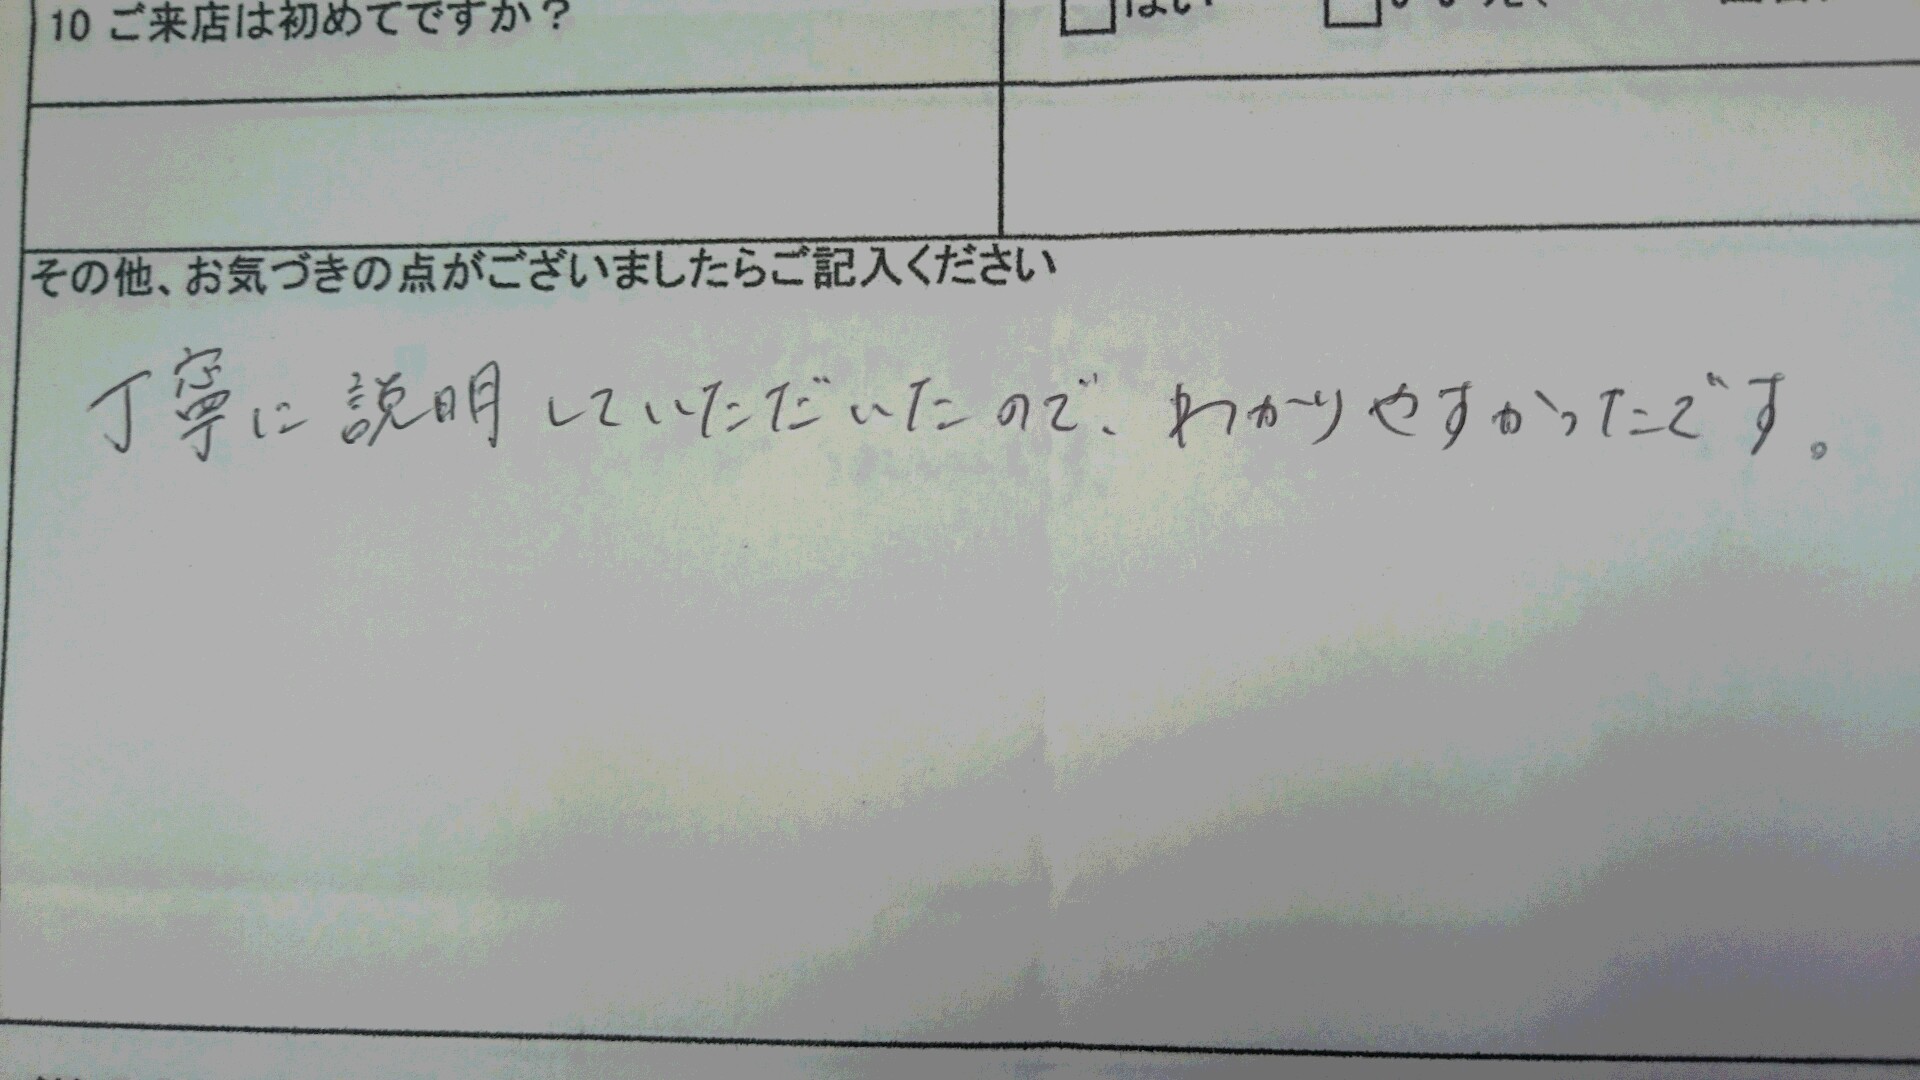 10 ご来店は初めてですか？
□はい □いいえ
その他、お気づきの点がございましたらご記入ください
丁寧に説明していただいたので、わかりやすかったです。